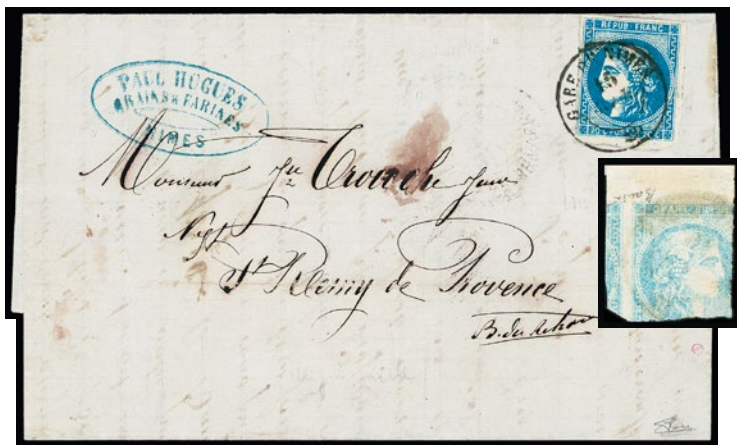 PAUL HUGUES
GRAINS & FARINES
NIMES
REPUB. FRANC
GARE DE NIMES
Monsieur Jn Trouche Jeune
Négt
St Remy de Provence
B. du Rhone